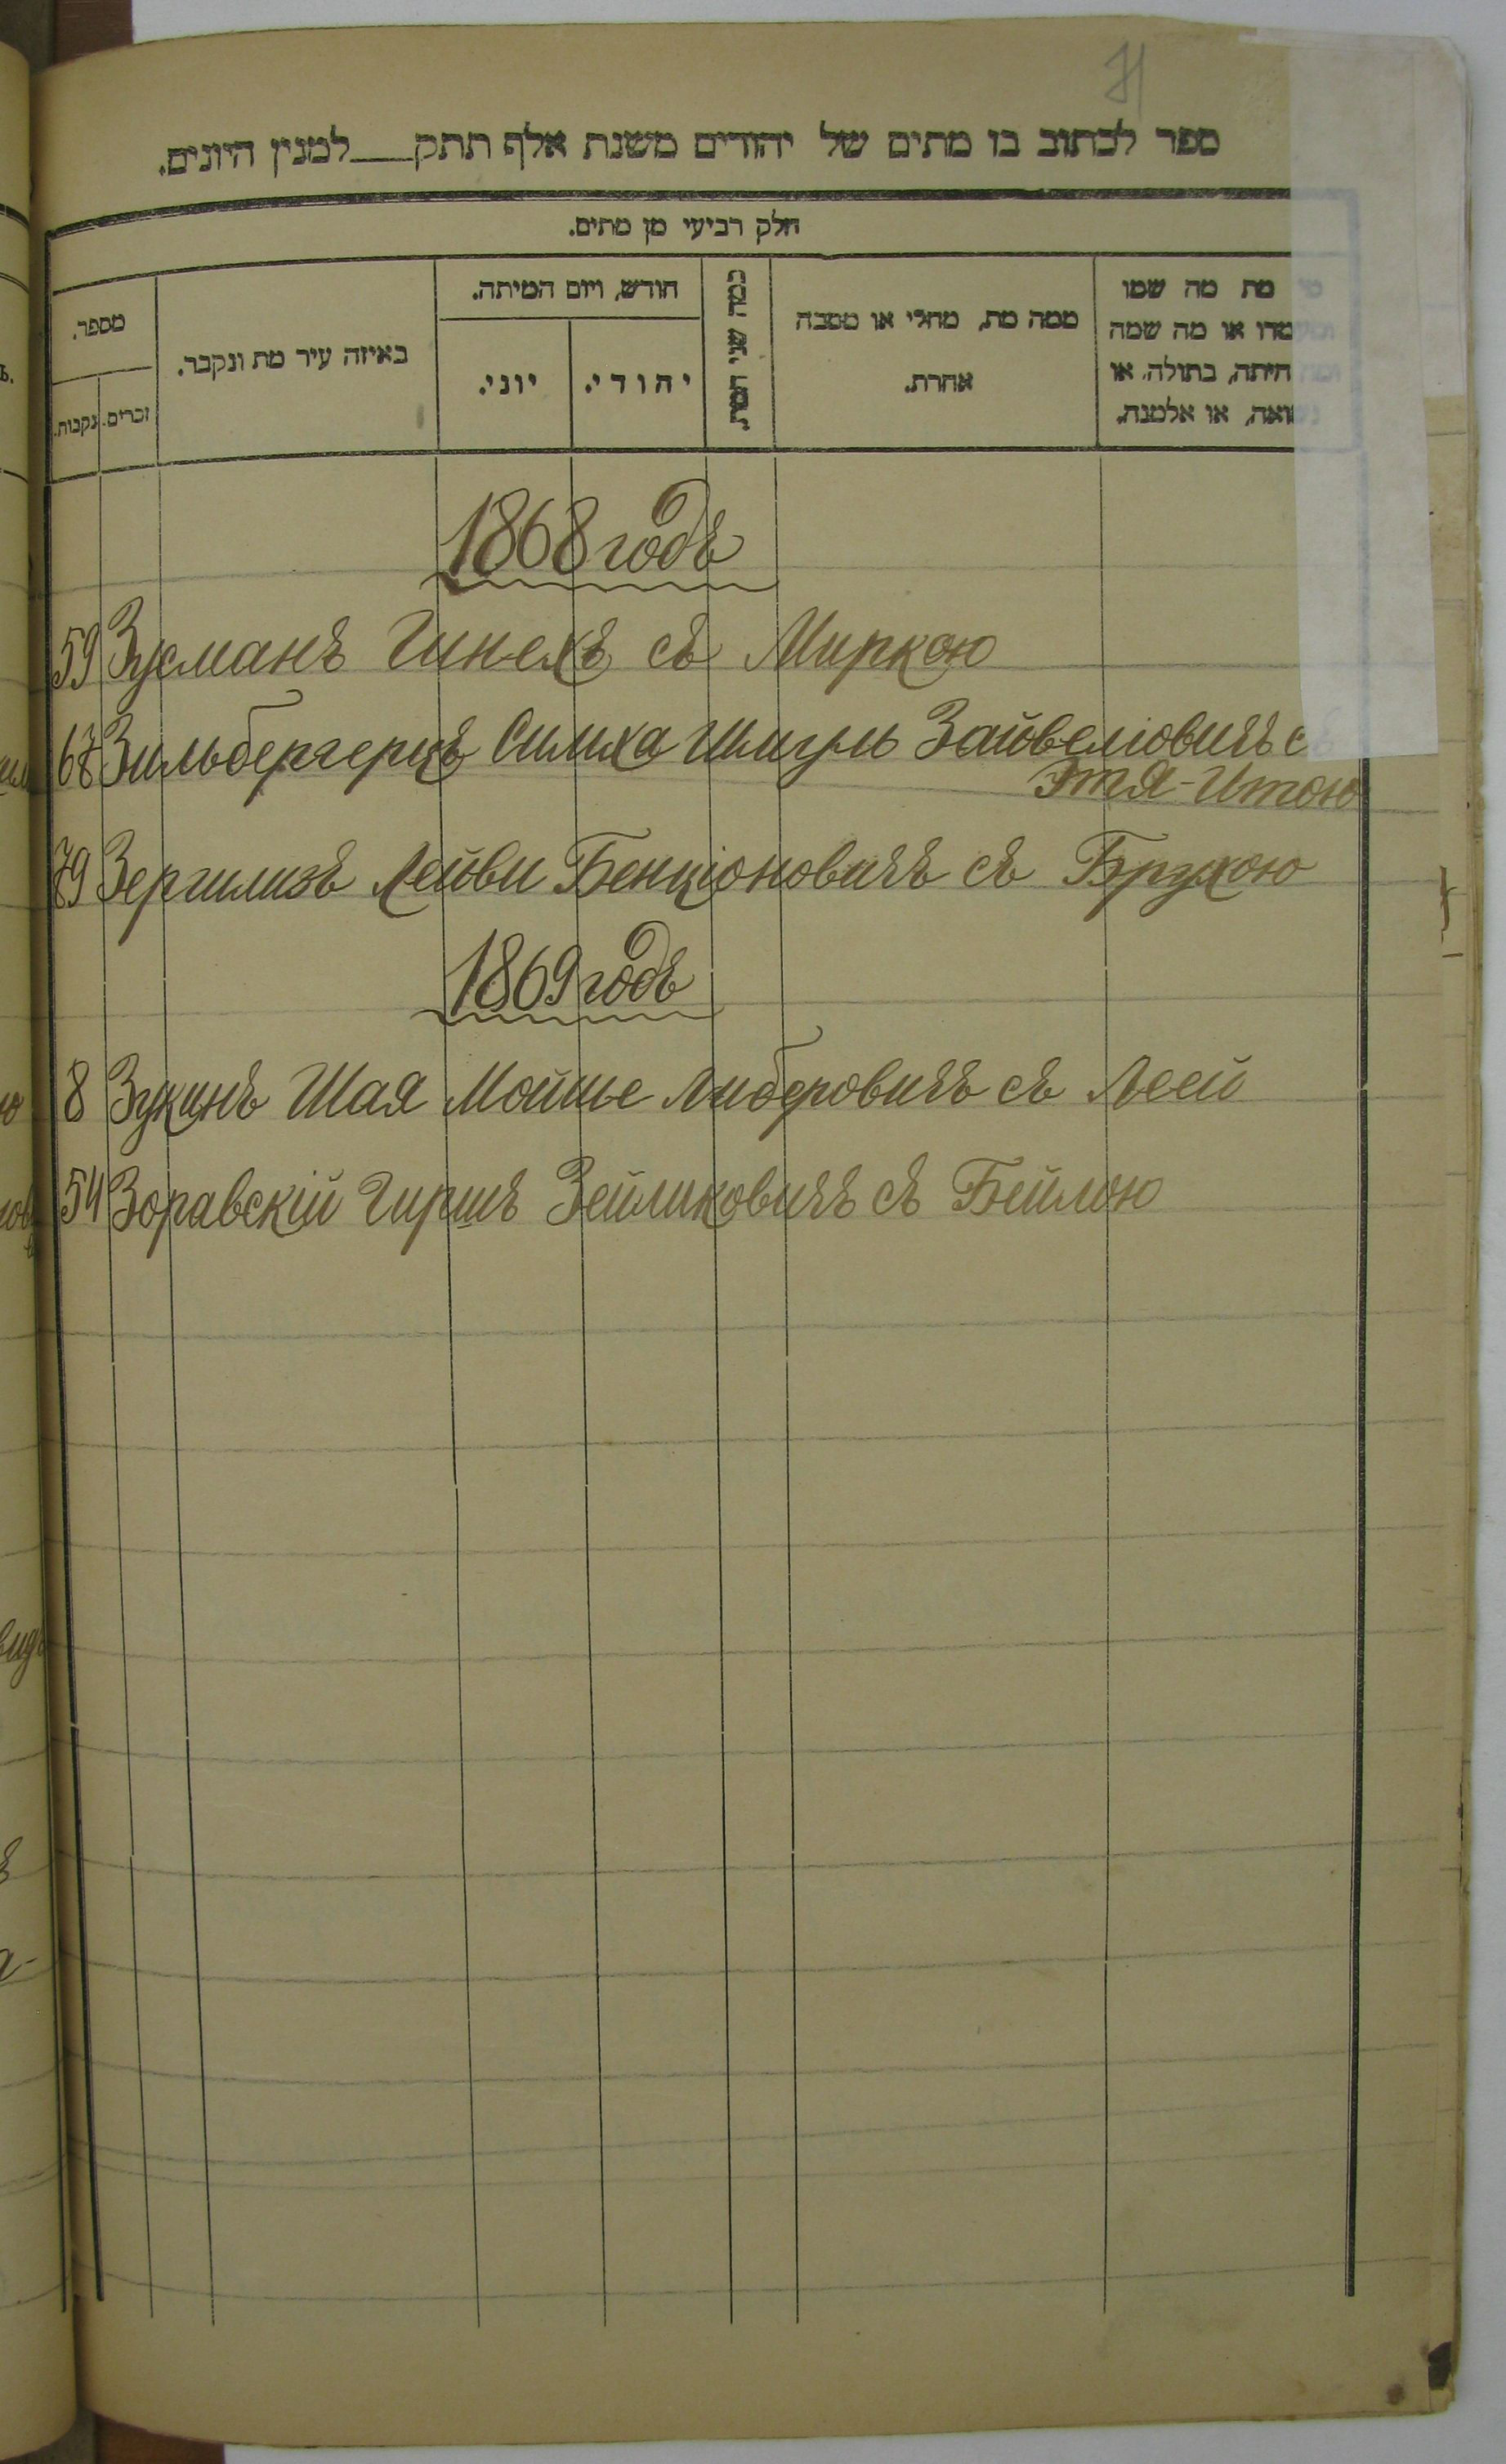 71
ספר לכתוב בו מתים של יהודים משנת אלף תתק___למנין היונים.
חלק רביעי מן מתים.
מספר.
זכרים. נקבות.
באיזה עיר מת ונקבר.
חודש, ויום המיתה.
יהודי. יוני.
כמה שני המת.
ממה מת, מחלי או מסבה
אחרת.
מי מת מה שמו
ומעמדו או מה שמה
ומה היתה, בתולה, או
נשואה, או אלמנה.
1868 годъ
59 Зусманъ Гинехъ съ Миркою
67 Зильбергерцъ Симха Шмуль Зайвеліовичъ съ
Этя-Итою
79 Зергилизъ Лейви Бенціоновичъ съ Брухою
1869 годъ
8 Зукинъ Шая Мойше Либеровичъ съ Леей
54 Зоравскій Гиршъ Зейликовичъ съ Бейлою